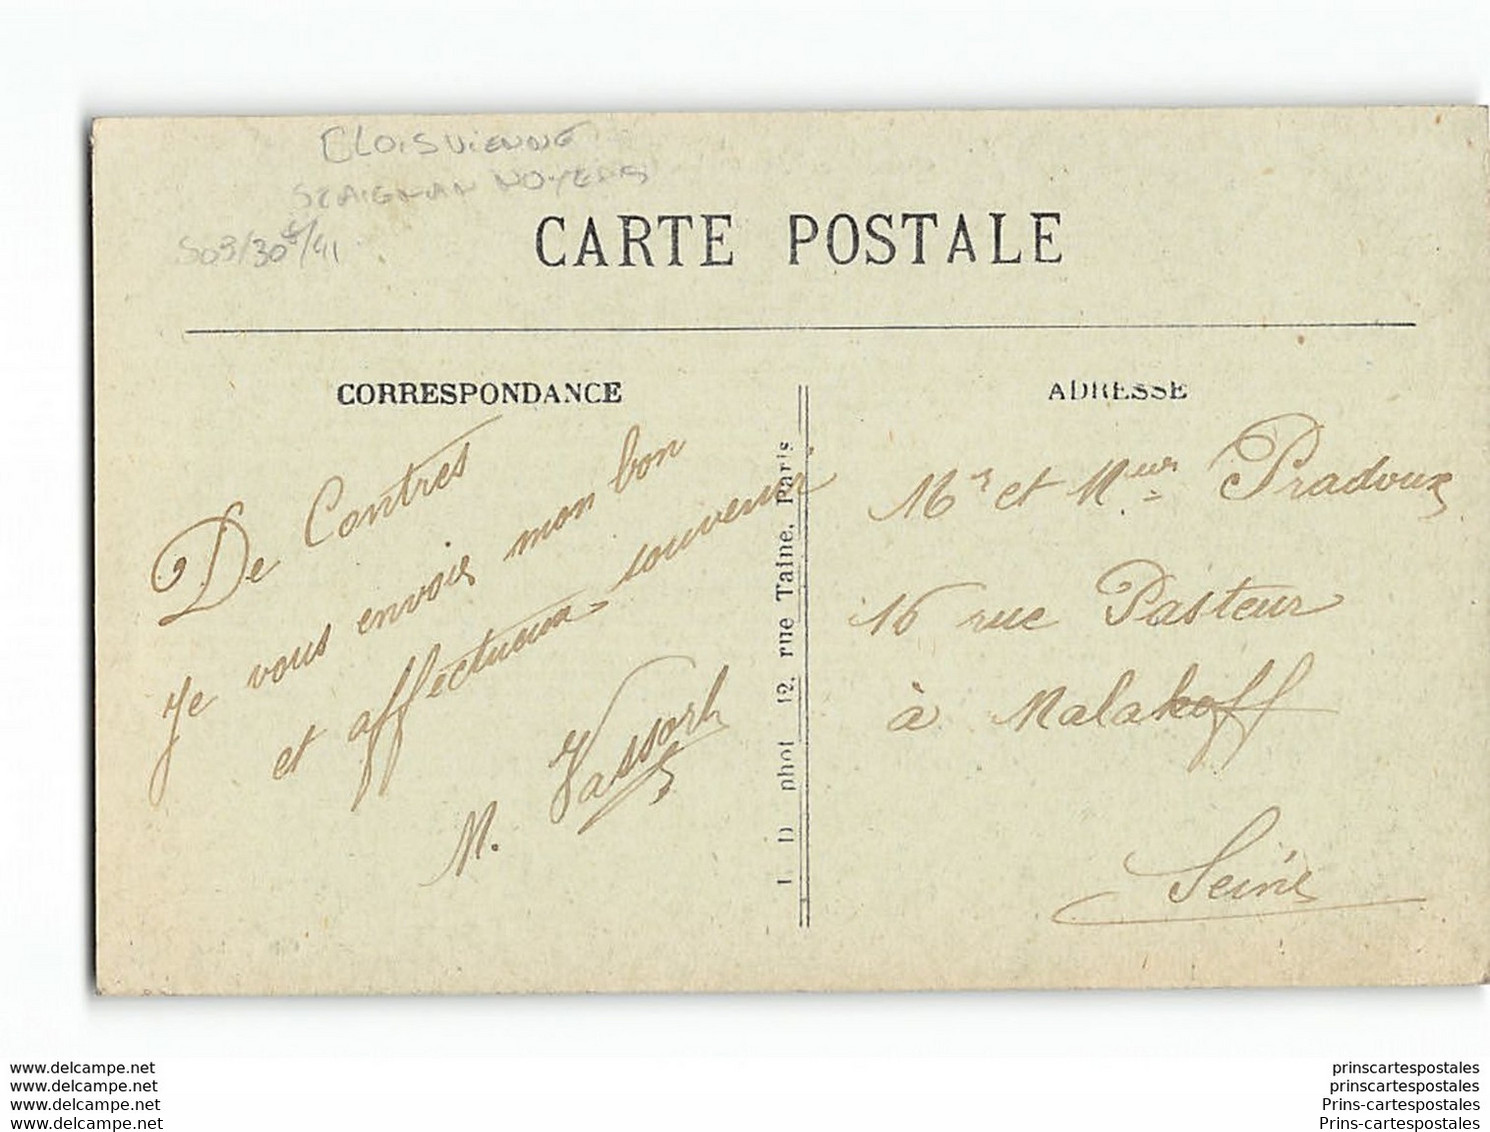 CLOISVIENNE
STAIGNAN NOYERS
CARTE POSTALE
CORRESPONDANCE
De Contres
je vous envoie mon bon
et affectueux souvenir
M. Vassort
phot 12, rue Taine, Paris
ADRESSE
Mr et Mme Pradoux
16 rue Pasteur
à Malakoff
Seine
www.delcampe.net
www.delcampe.net
www.delcampe.net
www.delcampe.net
prinscartespostales
prinscartespostales
Prins-cartespostales
Prins-cartespostales